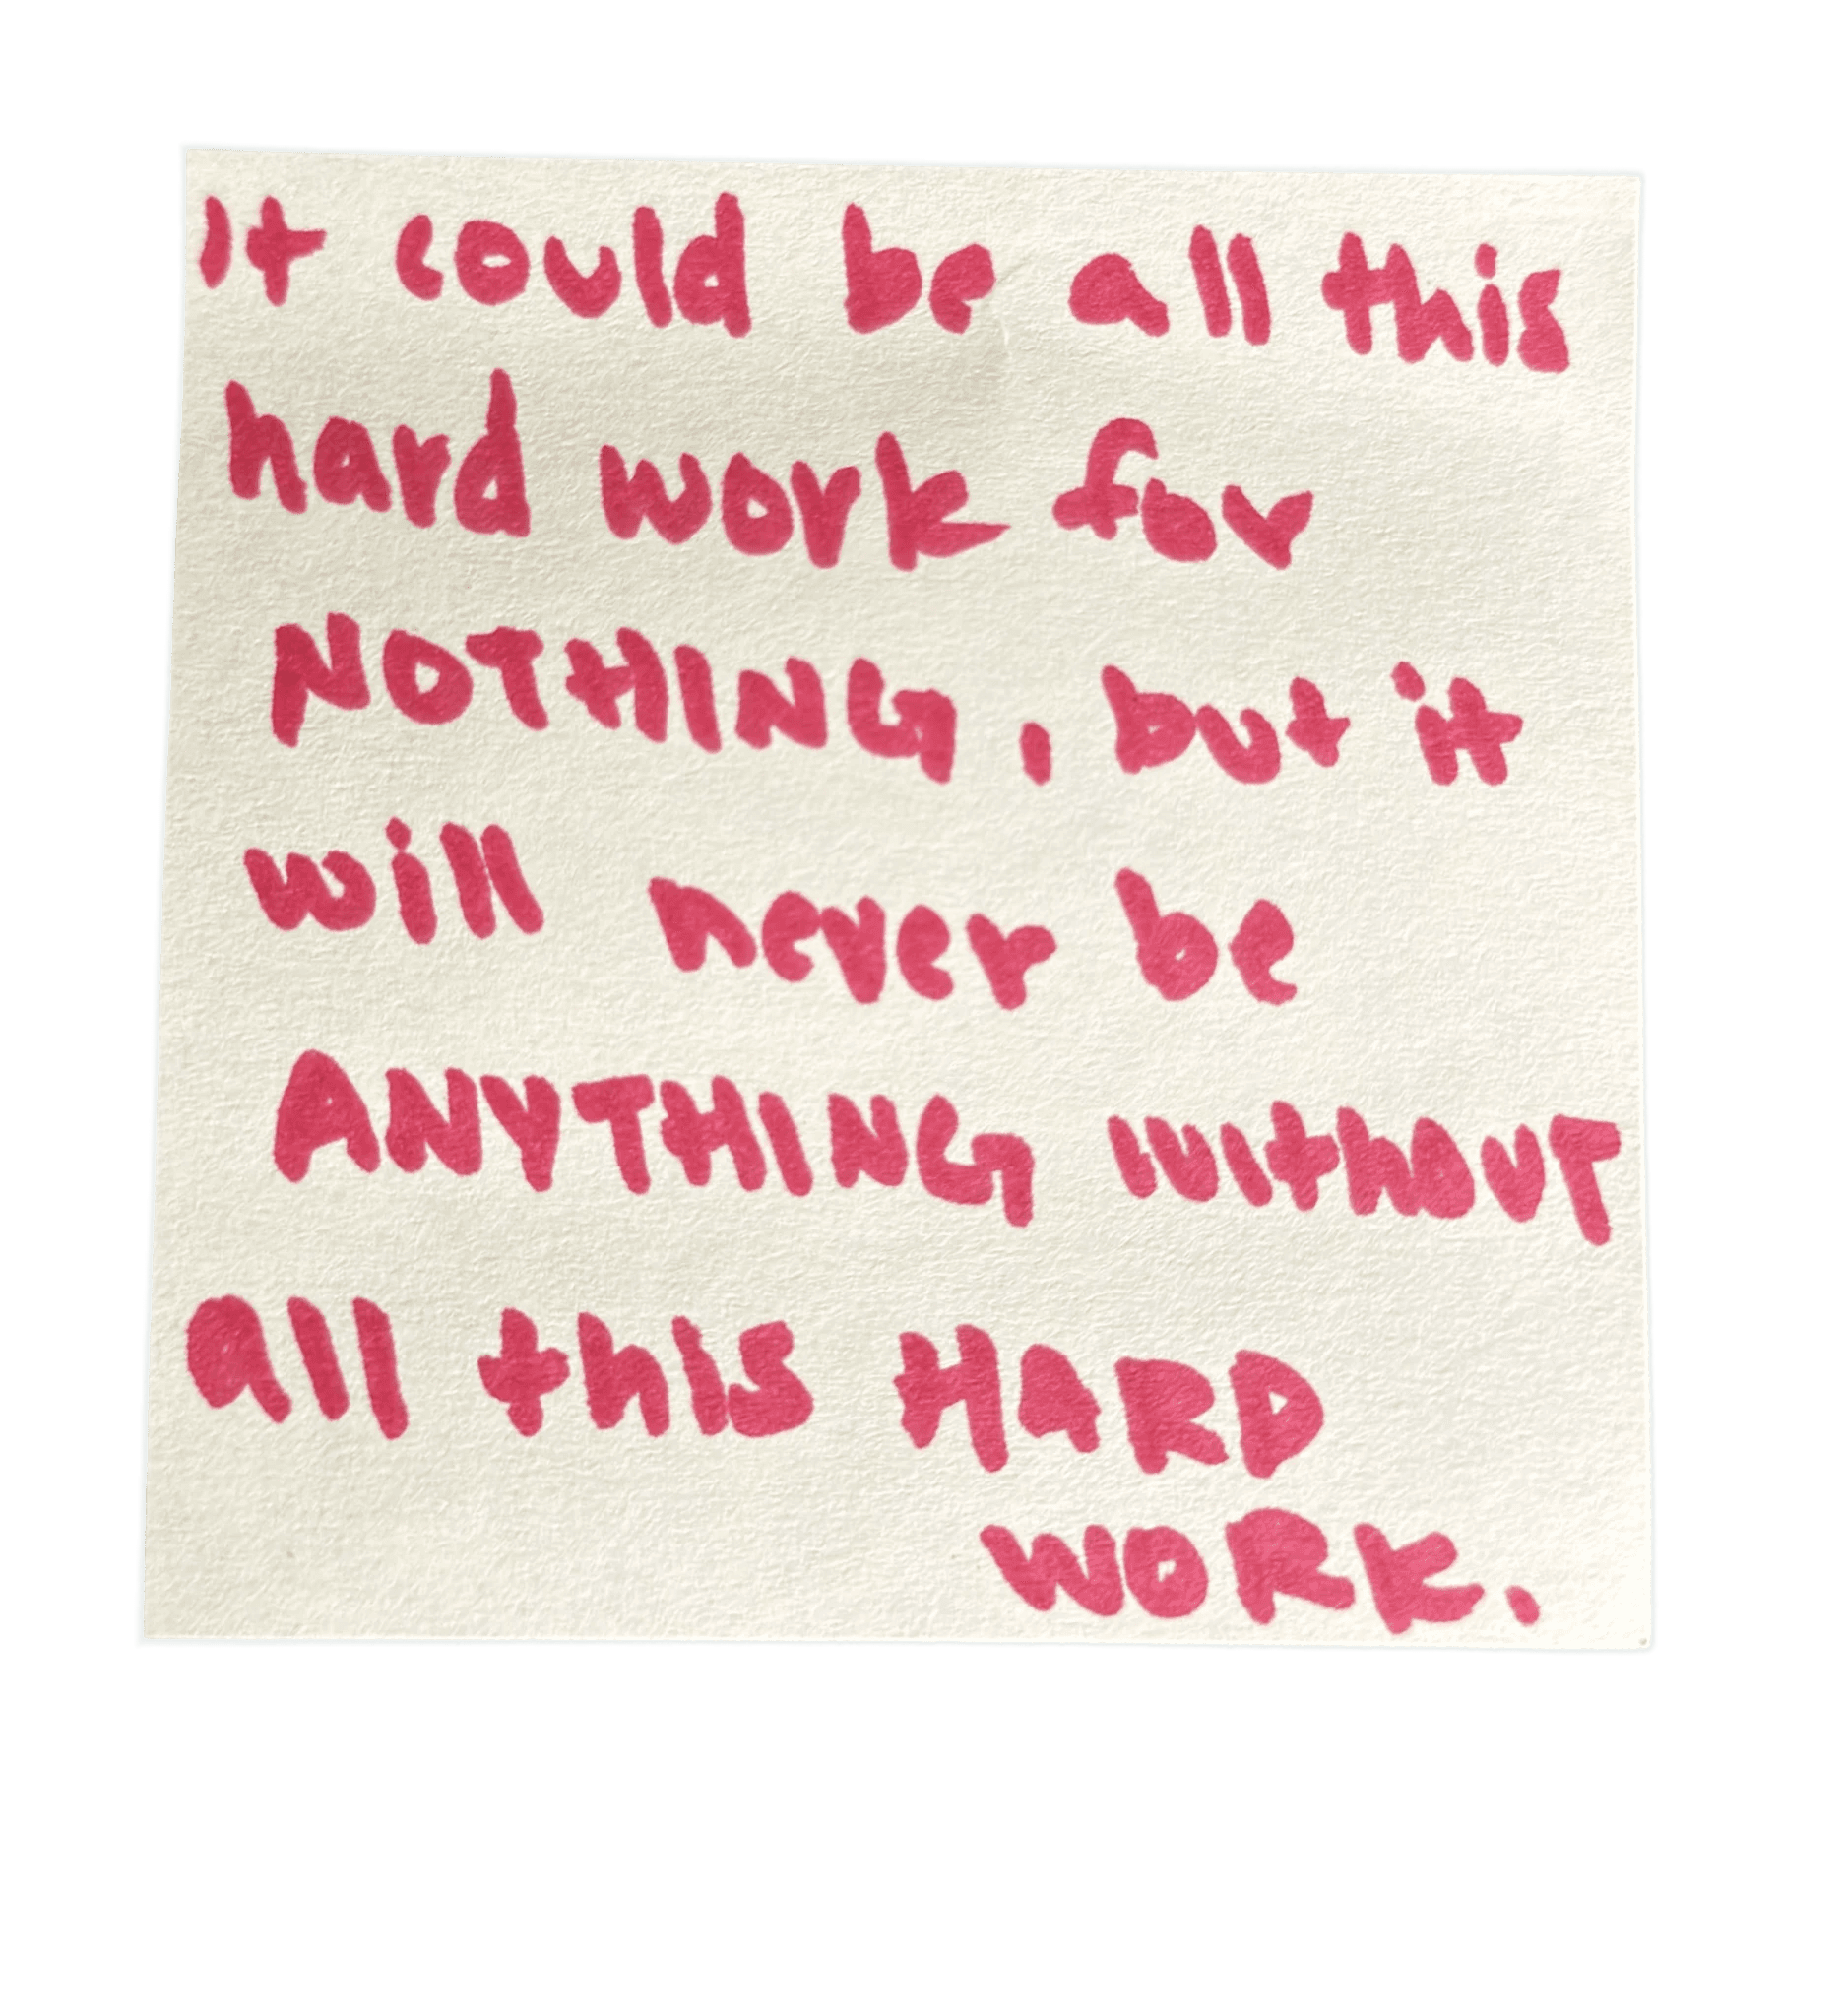 It could be all this
hard work for
NOTHING, but it
will never be
ANYTHING without
all this HARD
WORK.